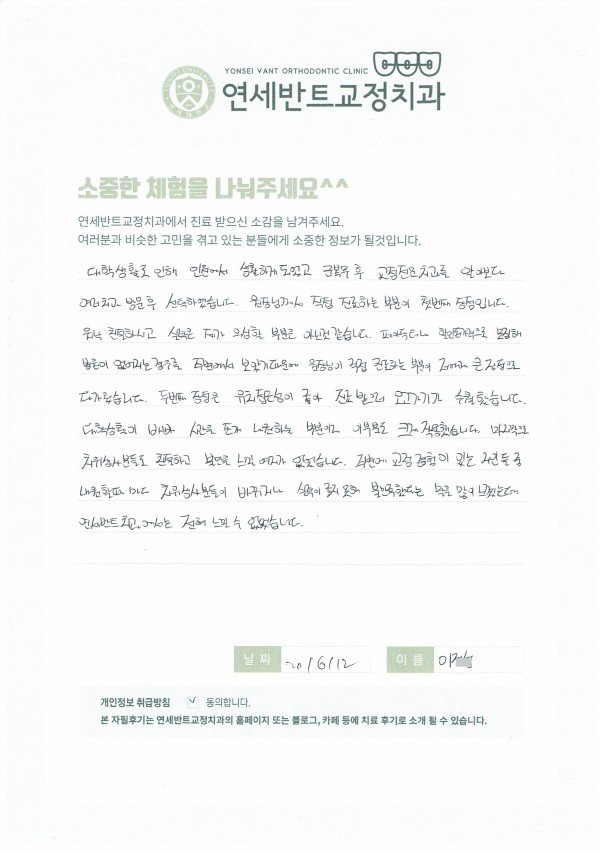 YONSEI VANT ORTHODONTIC CLINIC
연세반트교정치과
소중한 체험을 나눠주세요^^
연세반트교정치과에서 진료 받으신 소감을 남겨주세요.
여러분과 비슷한 고민을 겪고 있는 분들에게 소중한 정보가 될것입니다.
대학생활로 인해 인천에서 생활하게 되었고 군복무 후 교정전문 치과를 알아보다
여러치과 방문 후 선택하였습니다. 원장님께서 직접 진료하는 부분이 첫번째 장점입니다.
워낙 친절하시고 실력은 제가 의심할 부분은 아닌것 같습니다. 페이닥터나 확인불가적으로
병원이 없어지는 경우를 주변에서 보았기때문에 원장님이 직접 진료하는 부분이 저에게 큰 장점으로
다가왔습니다. 두번째 장점은 위치접근성이 좋아 진료 받으러 오고가기가 수월했습니다.
대학생활이 바빠 시간을 쪼개 내원하는 부분이라 이부분도 크게 작용했습니다. 마지막으로
치위생사분들도 친절하고 불편을 느낄 여지가 없었습니다. 주변에 교정 경험이 있는 지인들 중
내원할때 마다 치위생사분들이 바뀌거나 실력이 좋지 못해 불만족한다는 말을 많이 들었는데
연세반트치과에서는 전혀 느낄 수 없었습니다.
날 짜 20/6/12 이 름
개인정보 취급방침 ✓ 동의합니다.
본 자필후기는 연세반트교정치과의 홈페이지 또는 블로그, 카페 등에 치료 후기로 소개 될 수 있습니다.